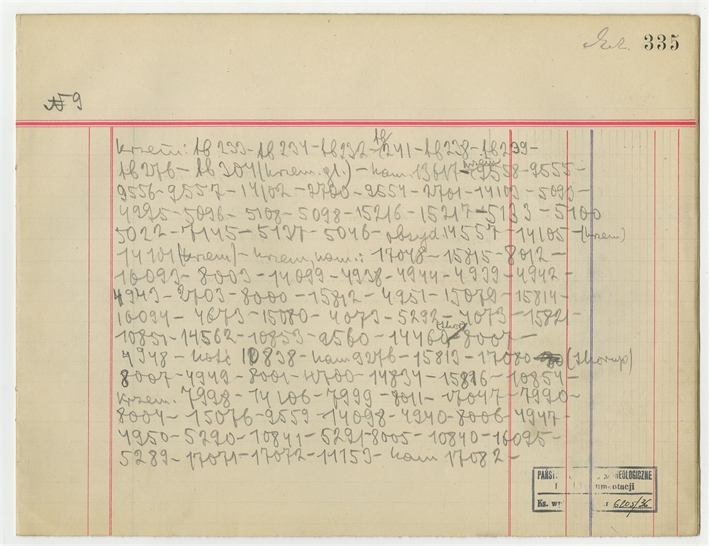 335
№ 9
krzem: tб 233 - tб 234 - tб 232 - tб 241 - tб 238 - tб 239 -
tб 276 - tб 304 (krzem. gl.) - kam 13617 - 9558 - 9555 -
9556 - 9557 - 14102 - 2700 - 9554 - 2701 - 14103 - 5093 -
4995 - 5096 - 5108 - 5098 - 15216 - 15217 - 5133 - 5100
5022 - 7145 - 5137 - 5046 - obsyd. 14557 - 14105 - (krzem)
14101 (krzem) - krzem, kam.: 17048 - 15815 - 8012 -
16093 - 8003 - 14099 - 4938 - 4944 - 4939 - 4942 -
4943 - 2703 - 8000 - 15812 - 4951 - 15079 - 15814 -
16094 - 4673 - 15080 - 4073 - 5292 - 4073 - 15821 -
10851 - 14562 - 10853 - 9560 - 14460 - 8007 -
4948 - kość 10838 - kam 9276 - 15813 - 17080 - (skorup)
8007 - 4949 - 8001 - 10700 - 14834 - 15816 - 10854 -
krzem. 7998 - 14106 - 7999 - 8011 - 17047 - 7990 -
8004 - 15076 - 9559 - 14098 - 4940 - 8006 - 4947 -
4950 - 5290 - 10841 - 5291 - 8005 - 10840 - 16095 -
5289 - 17071 - 17072 - 14153 - kam 17082 -
PAŃST EOLOGICZNE
mentacji
Ks. w 6205/36